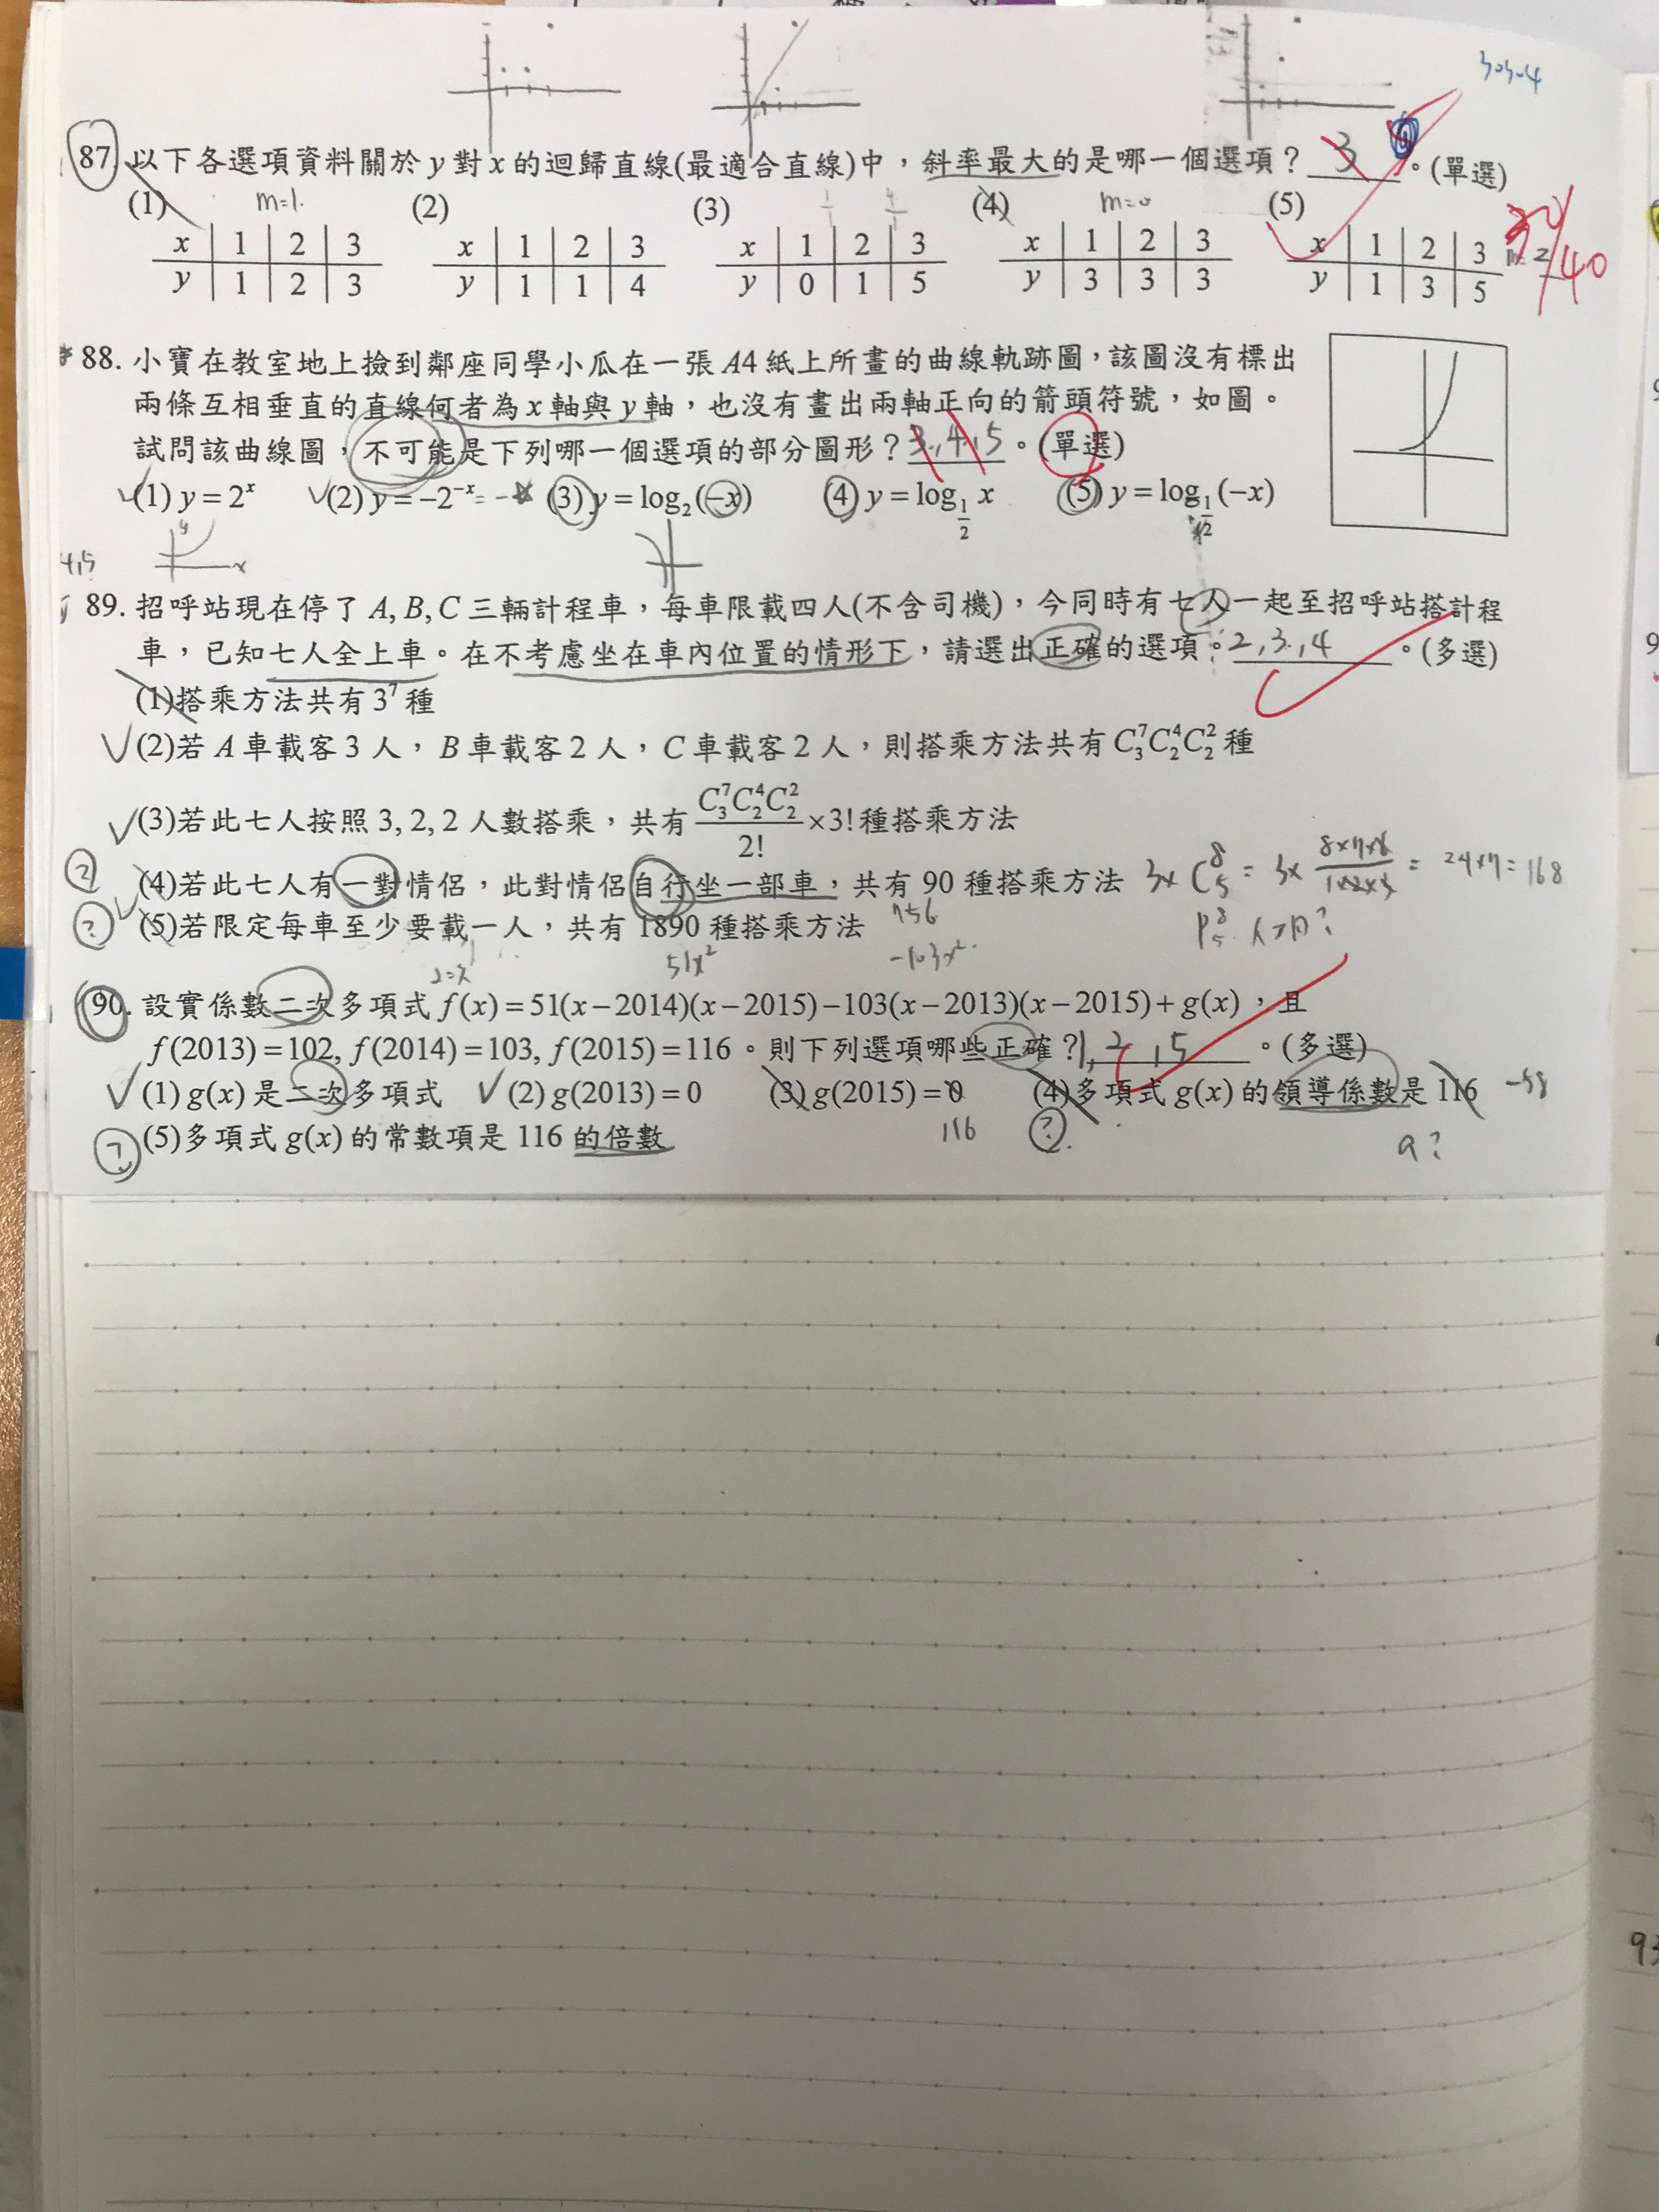 3.3.4
87. 以下各選項資料關於 y 對 x 的迴歸直線(最適合直線)中，斜率最大的是哪一個選項？ 3 。(單選)
(1) m=1. (2) (3) (4) m=0 (5)
x 1 2 3 x 1 2 3 x 1 2 3 x 1 2 3 x 1 2 3
y 1 2 3 y 1 1 4 y 0 1 5 y 3 3 3 y 1 3 5
30/40
88. 小寶在教室地上撿到鄰座同學小瓜在一張 A4 紙上所畫的曲線軌跡圖，該圖沒有標出
兩條互相垂直的直線何者為 x 軸與 y 軸，也沒有畫出兩軸正向的箭頭符號，如圖。
試問該曲線圖，不可能是下列哪一個選項的部分圖形？ 3,4,5 。(單選)
(1) y = 2^x (2) y = −2^−x (3) y = log₂(−x) (4) y = log_1/2 x (5) y = log_1/2 (−x)
y
x
4,5
89. 招呼站現在停了 A, B, C 三輛計程車，每車限載四人(不含司機)，今同時有七人一起至招呼站搭計程
車，已知七人全上車。在不考慮坐在車內位置的情形下，請選出正確的選項： 2,3,4 。(多選)
(1)搭乘方法共有 3⁷ 種
(2)若 A 車載客 3 人，B 車載客 2 人，C 車載客 2 人，則搭乘方法共有 C₃⁷C₂⁴C₂² 種
(3)若此七人按照 3, 2, 2 人數搭乘，共有 C₃⁷C₂⁴C₂²/2! ×3! 種搭乘方法
? (4)若此七人有一對情侶，此對情侶自行坐一部車，共有 90 種搭乘方法 3× C₅⁸ = 3× 8×7×6/1×2×3 = 24×7=168
? (5)若限定每車至少要載一人，共有 1890 種搭乘方法 756 P₅⁸
51x² −103x²
90. 設實係數二次多項式 f(x) = 51(x−2014)(x−2015)−103(x−2013)(x−2015)+g(x)，且
f(2013) = 102, f(2014) = 103, f(2015) = 116。則下列選項哪些正確? 1,2,5 。(多選)
(1) g(x) 是二次多項式 (2) g(2013) = 0 (3) g(2015) = 0 (4)多項式 g(x) 的領導係數是 116 -58
? (5)多項式 g(x) 的常數項是 116 的倍數 116 ? a?
93